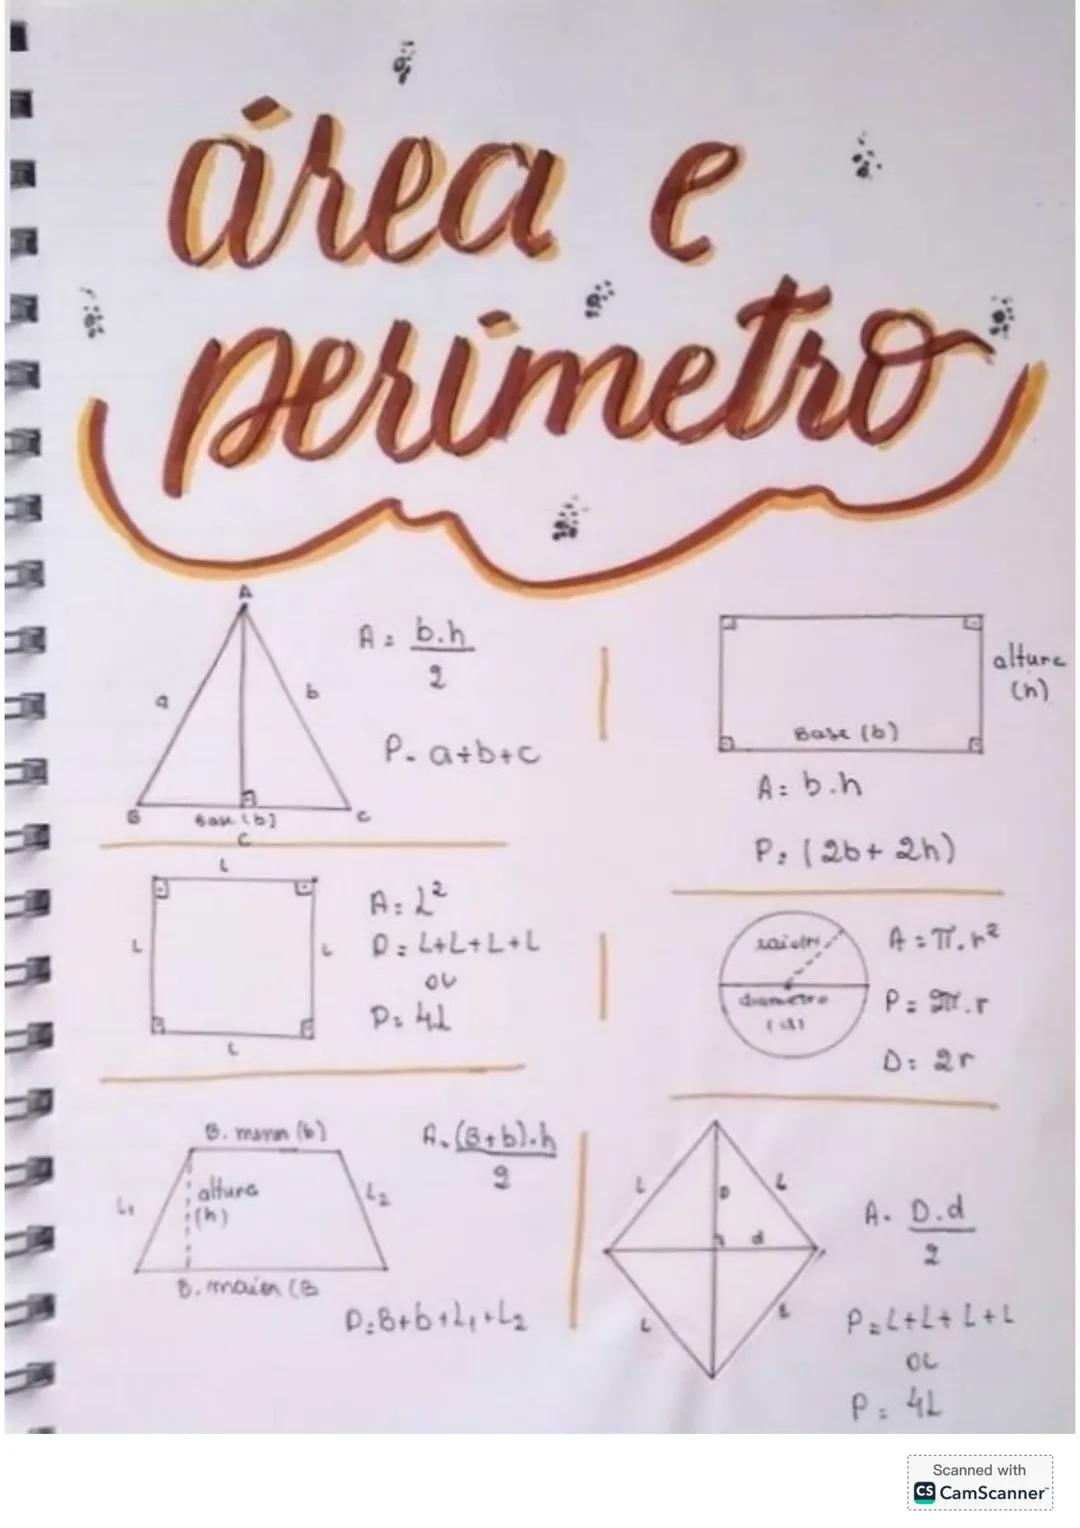 área e
perímetro
A
a
b
B
Base (b)
C
c
A = b.h
2
P = a+b+c
altura
(h)
Base (b)
A = b.h
P = (2b + 2h)
L
L
L
L
A = L²
P = L+L+L+L
ou
P = 4L
raio(r)
diametro
(d)
A = π.r²
P = 2π.r
D = 2r
B. menor (b)
L₁
altura
(h)
L₂
B. maior (B
A = (B+b).h
2
P = B+b+L₁+L₂
L
L
D
d
L
L
A = D.d
2
P = L+L+L+L
ou
P = 4L
Scanned with
CS CamScanner